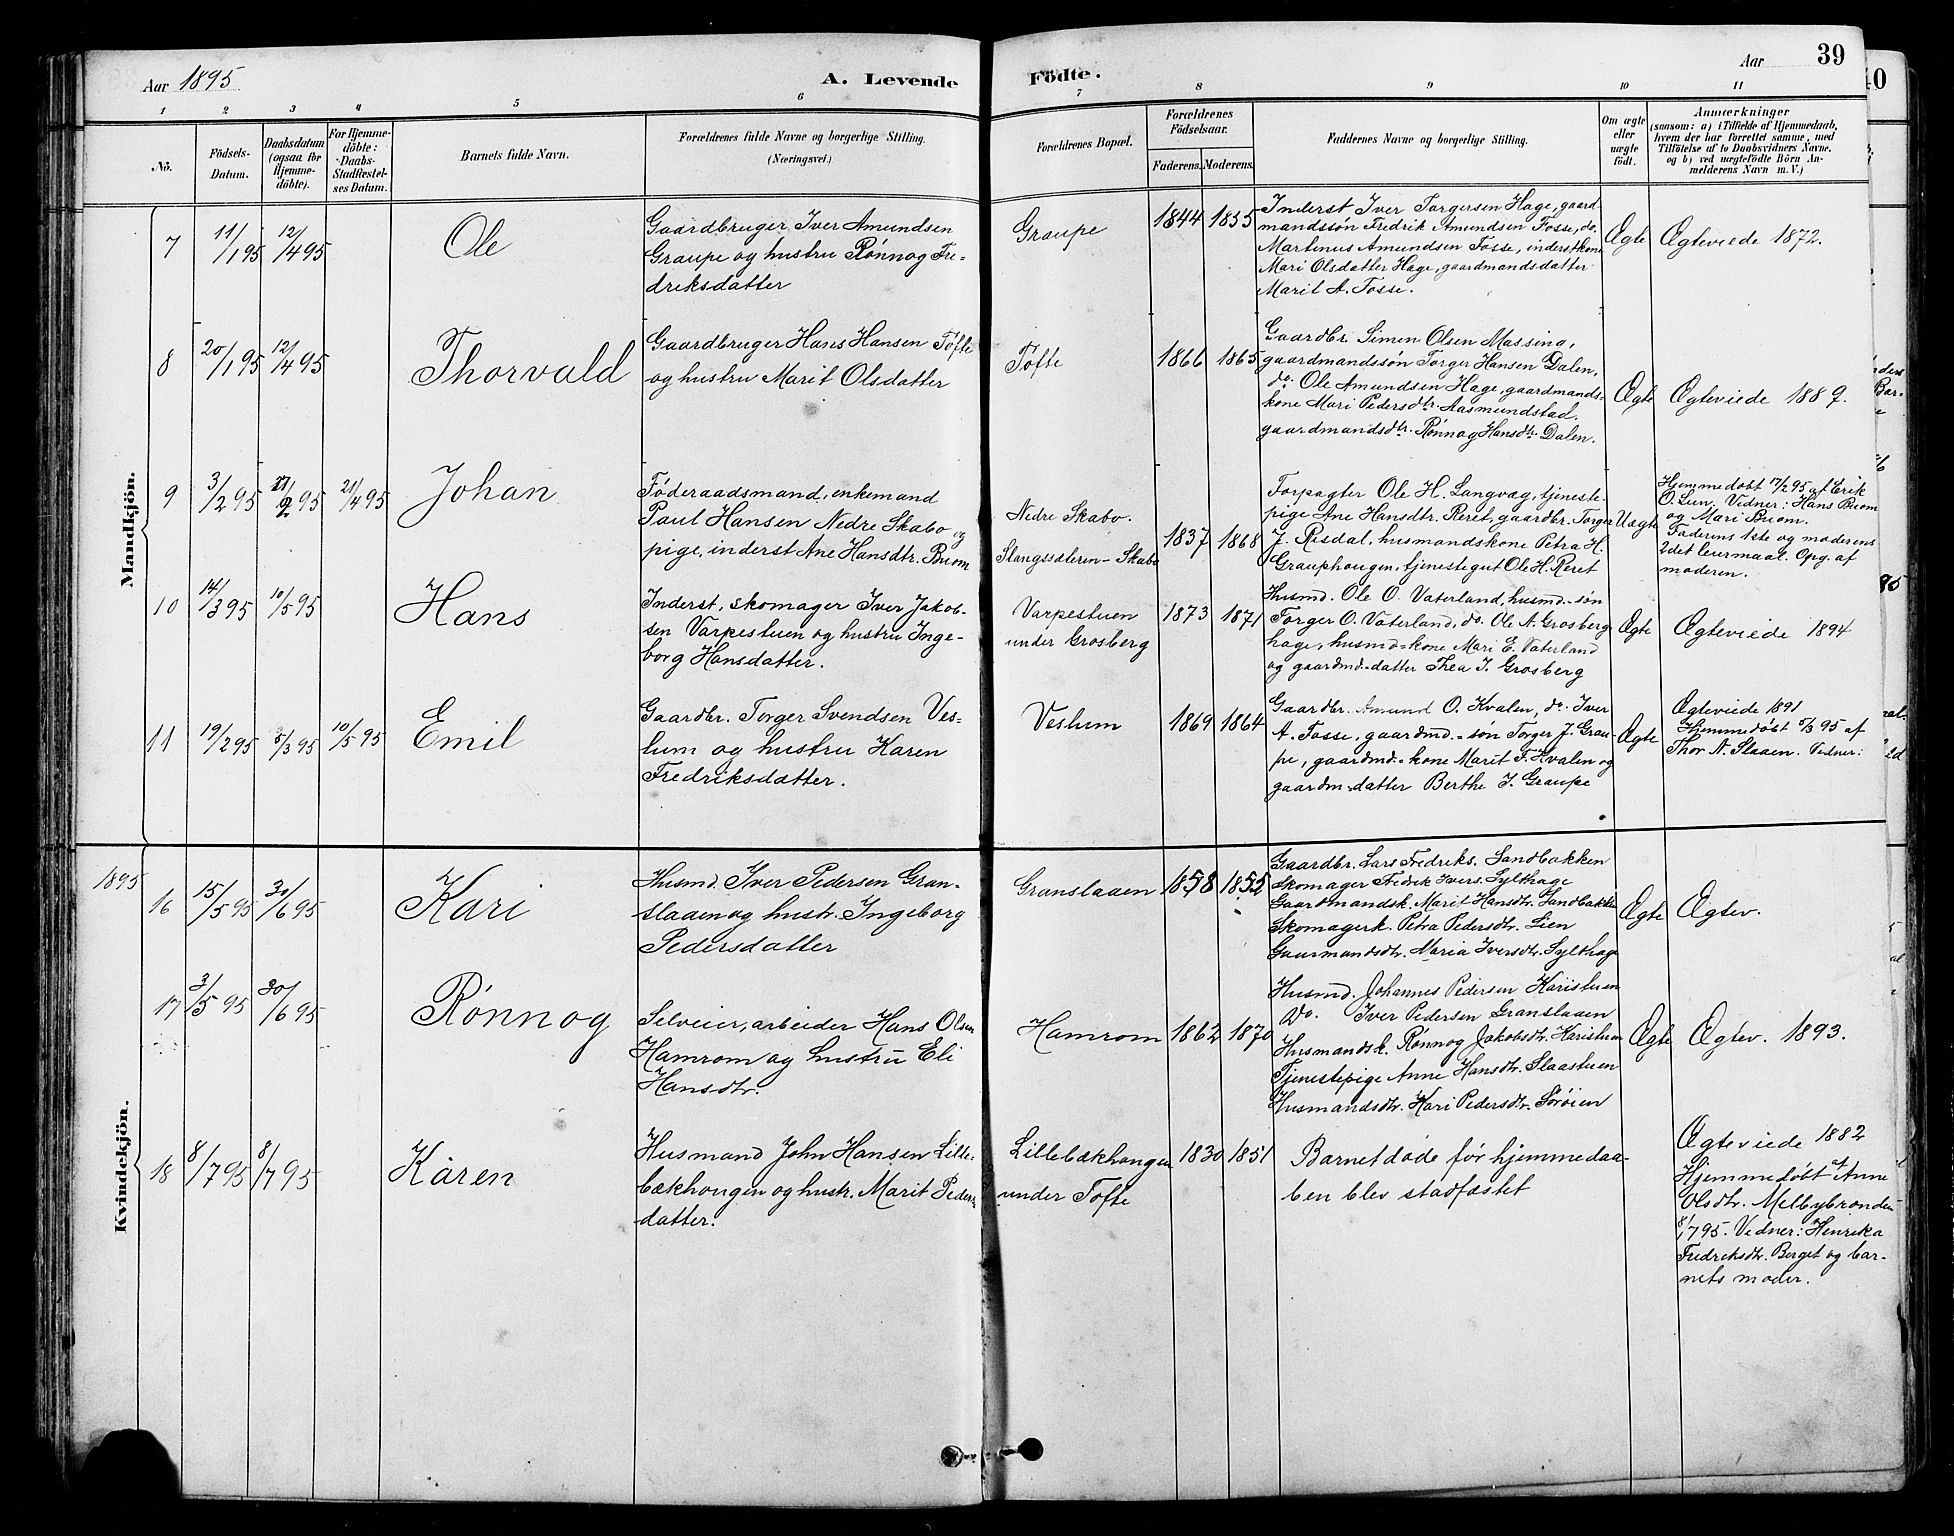 Aar 1895
A. Levende
Födte.
Aar
39
1 2 3 4 5 6 7 8 9 10 11
No.
Födsels-
Datum.
Daabsdatum
(ogsaa for
Hjemme-
döbte).
For Hjemme-
döbte:
Daabs-
Stadfæstel-
ses Datum.
Barnets fulde Navn.
Forældrenes fulde Navne og borgerlige Stilling.
(Næringsvei.)
Forældrenes Bopæl.
Forældrenes
Födselsaar.
Faderens. Moderens.
Faddernes Navne og borgerlige Stilling.
Om ægte
eller
uægte
födt.
Anmærkninger
(saasom: a) i Tilfælde af Hjemmedaab,
hvem der har forrettet samme, med
Tilföielse af to Daabsvidners Navne,
og b) ved uægtefödte Börn An-
melderens Navn m. V.)
Mandkjön.
7
11/1 95
12/4 95
Ole
Gaardbruger Iver Amundsen
Graupe og hustru Rønnog Fre-
driksdatter
Graupe
1844 1855
Inderst Iver Torgersen Hage, gaard-
mandssøn Fredrik Amundsen Fosse, do.
Martinus Amundsen Fosse, inderstkone
Mari Olsdatter Hage, gaardmandsdatter
Marit A. Fosse.
Ægte
Ægteviede 1872.
8
20/1 95
12/4 95
Thorvald
Gaardbruger Hans Hansen Tofte
og hustru Marit Olsdatter
Tofte
1866 1865
Gaardbr. Simen Olsen Massing,
gaardmandssøn Torger Hansen Dalen,
do. Ole Amundsen Hage, gaardmands-
kone Mari Pedersdtr. Aasmundstad,
gaardmandsdtr. Rønnog Hansdtr. Dalen.
Ægte
Ægteviede 1889.
9
3/2 95
17/2 95
21/4 95
Johan
Føderaadsmand, enkemand
Paul Hansen Nedre Skabo og
pige, inderst Ane Hansdtr. Buom
Nedre Skabo.
Slangssæteren-Skabo
1837 1868
Forpagter Ole H. Langvæg, tjeneste-
pige Ane Hansdtr. Reret, gaardbr. Torger
J. Risdal, husmandskone Petra H.
Grauphougen, tjenestegut Ole H. Reret
Uægte
Hjemmedøbt 17/2 95 af Erik
O. Lien. Vidner: Hans Buom
og Mari Buom.
Faderens 1ste og moderens
2det leiermaal. Opg. af
moderen.
10
14/3 95
10/5 95
Hans
Inderst, skomager Iver Jakob-
sen Varpestuen og hustru Inge-
borg Hansdatter.
Varpestuen
under Grosberg
1873 1871
Husmd. Ole O. Vaterland, husmd.-søn
Torger O. Vaterland, do. Ole A. Grosberg-
hage, husmd-kone Mari E. Vaterland
og gaardmd.-datter Thea J. Grosberg
Ægte
Ægteviede 1894
11
19/2 95
5/3 95
10/5 95
Emil
Gaardbr. Torger Svendsen Ves-
lum og hustru Karen
Fredriksdatter.
Veslum
1869 1864
Gaardbr. Amund O. Kvalen, do. Iver
A. Fosse, gaardmd.-søn Torger J. Grau-
pe, gaardmd.-kone Marit F. Kvalen og
gaardm.-datter Berthe J. Graupe
Ægte
Ægteviede 1891
Hjemmedøbt 5/3 95 af
Thor N. Slaaen. Vidner:
1895
Kvindekjön.
16
15/5 95
30/6 95
Kari
Husmd. Iver Pedersen Gran-
slaaen og hustr. Ingeborg
Pedersdatter
Granslaaen
1858 1855
Gaardbr. Lars Fredriks. Sandbakken
Skomager Fredrik Ivers. Sylthage
Gaardmandsk. Marit Hansdtr. Sandbakken
Skomagerk. Petra Pedersdtr. Lien
Gaarmandsdtr. Maria Iversdtr. Sylthage
Ægte
Ægtev.
17
3/5 95
30/6 95
Rønnog
Selveier, arbeider Hans Olsen
Hamrom og hustru Eli
Hansdtr.
Hamrom
1862 1870
Husmd. Johannes Pedersen Karistuen
Do. Iver Pedersen Granslaaen
Husmandsk. Rønnog Jakobsdtr. Karistuen
Tjenestepige Anne Hansdtr. Slaastuen
Husmandsdtr. Kari Pedersdtr. Sørøien
Ægte
Ægtev. 1893.
18
8/7 95
8/7 95
Karen
Husmand John Hansen Lille-
bækhougen og hustr. Marit Peders-
datter.
Lillebækhougen
under Tofte
1830 1851
Barnet døde før hjemmedaa-
ben blev stadfæstet
Ægteviede 1882
Hjemmedøbt af Anne
Olsdtr. Melbybraaden
8/7 95. Vidner: Henrika
Fredriksdtr. Berget og bar-
nets moder.